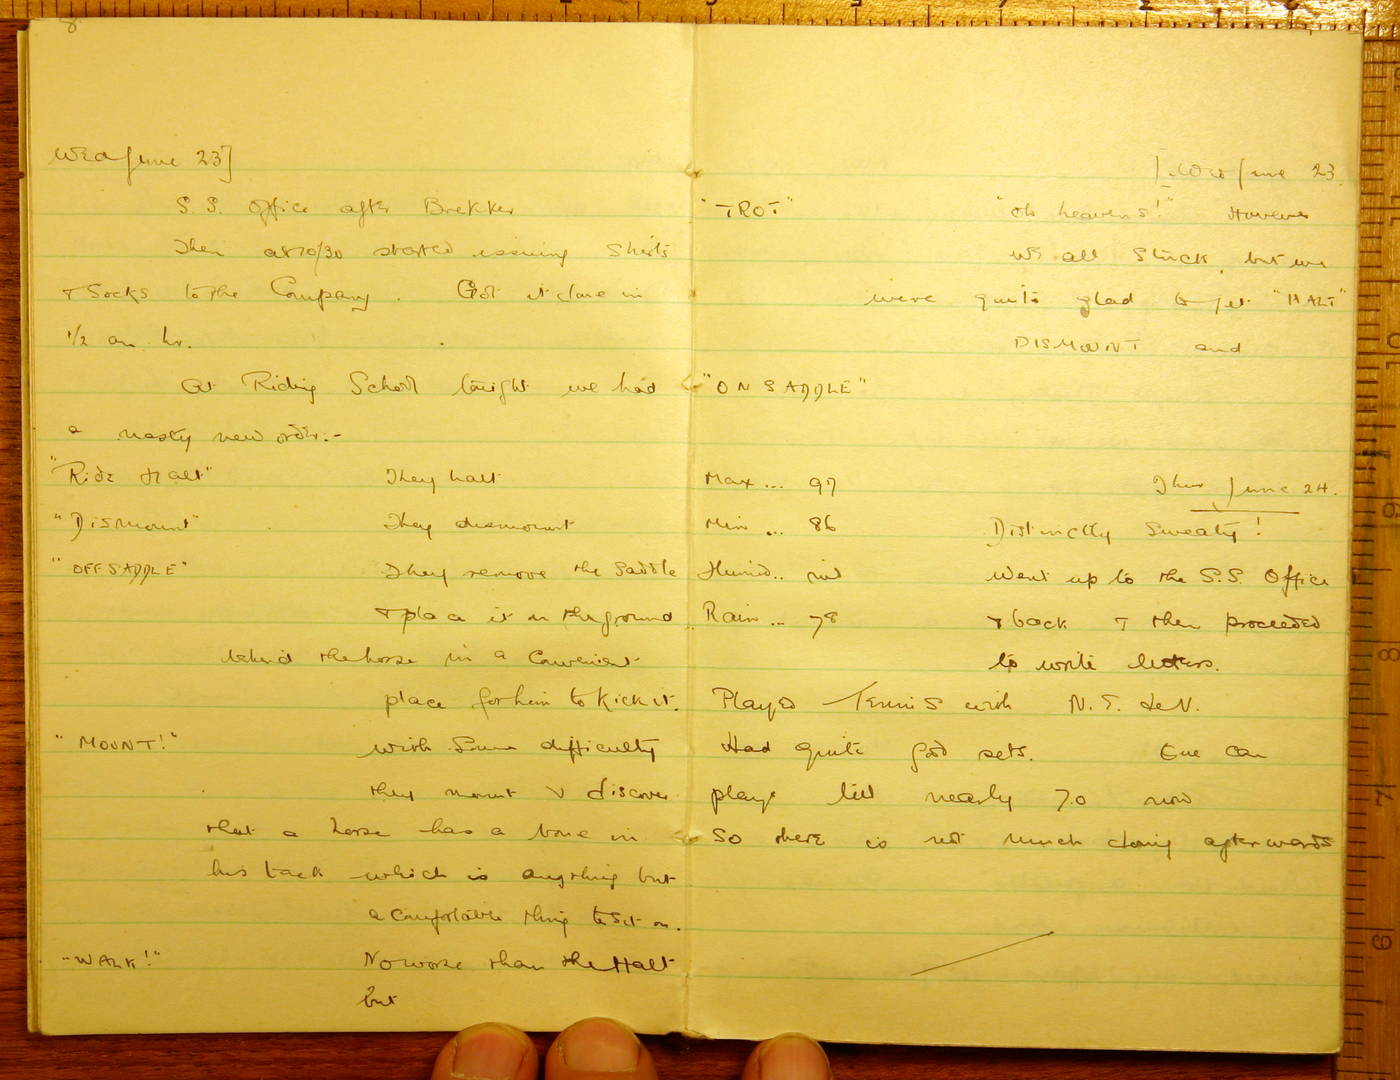 8
Wed June 23]
S.S. Office after Brekker
Then at 10/30 started issuing Shirts
& Socks to the Company. Got it done in
1/2 an hr.
At Riding School tonight we had
a nasty new order:-
"Ride Halt" They halt
"Dismount" They dismount
"OFF SADDLE" They remove the Saddle
& place it on the ground
behind the horse in a Convenient
place for him to Kick it.
"MOUNT!" With Some difficulty
they mount & discover
that a horse has a bone in
his back which is anything but
a comfortable thing to sit on.
"WALK!" No worse than the Halt
but
[Wed June 23.
"TROT" "Oh heavens!" However
we all Stuck, but we
were quite glad to get "HALT"
DISMOUNT and
"ON SADDLE"
Thur June 24.
Max ... 97
Min ... 86 Distinctly Sweaty!
Humid.. nil Went up to the S.S. Office
Rain ... 78 & back & then proceeded
to write letters.
Played Tennis with N.S. & N.
Had quite good sets. One can
play till nearly 7.0 now
So there is not much doing afterwards